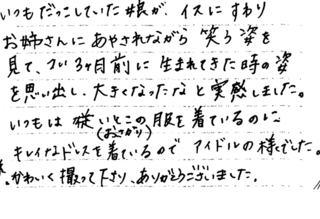 いつもだっこしていた娘が、イスにすわり
お姉さんにあやされながら 笑う姿を
見て、つい3ヶ月前に 生まれてきた時の姿
を思い出し、大きくなったなと実感しました。
いつもは いとこの服を着ているのに
(おさがり)
キレイなドレスを着ているので アイドルの様でした。
かわいく撮って下さり、ありがとうございました。